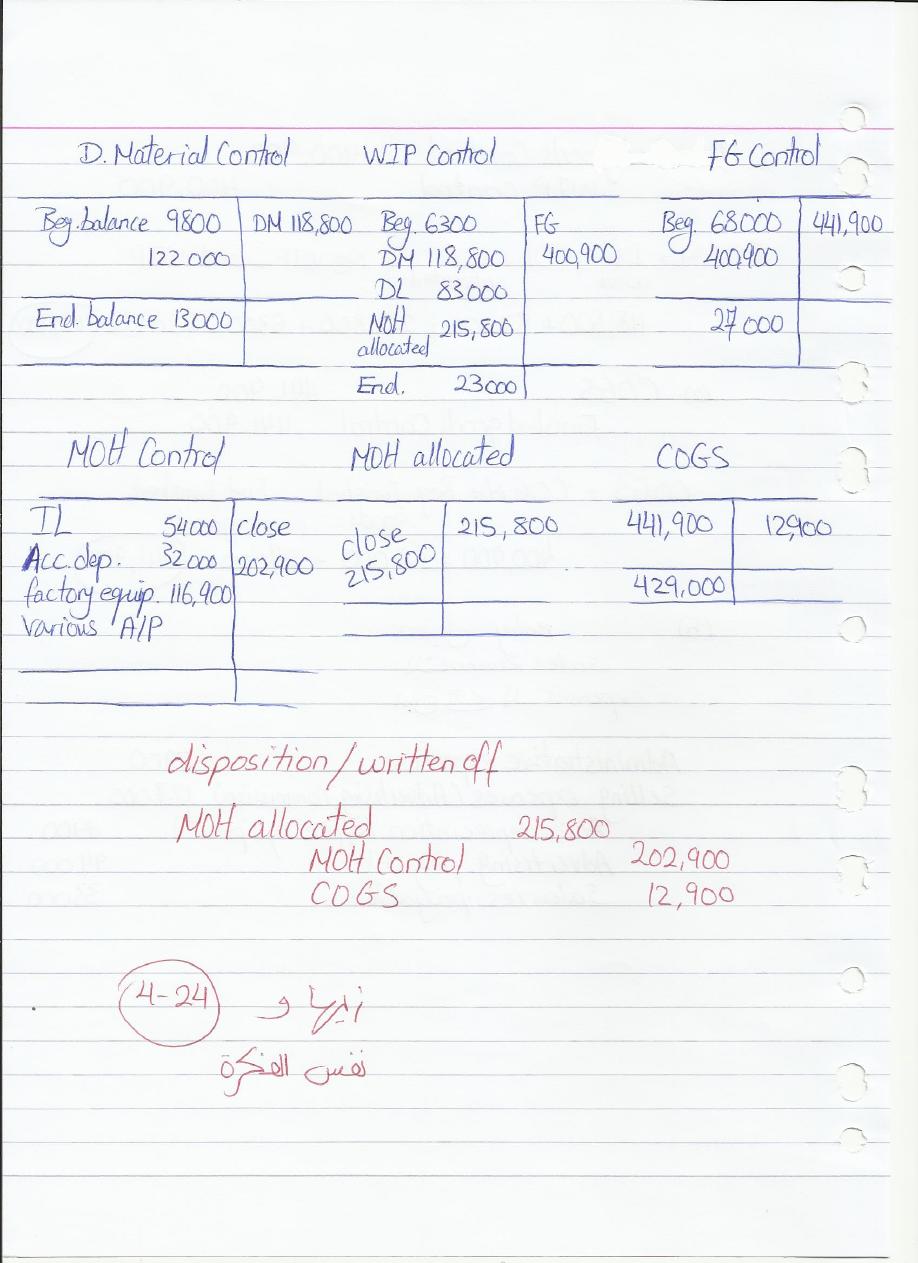 D. Material Control WIP Control FG Control
Beg. balance 9800 DM 118,800 Beg. 6300 FG Beg. 68000 441,900
122000 DM 118,800 400,900 400,900
DL 83000
End. balance 13000 MOH 215,800 27000
allocated
End. 23000
MOH Control MOH allocated COGS
IL 54000 close close 215,800 441,900 12,900
Acc. dep. 32000 202,900 215,800
factory equip. 116,900 429,000
Various A/P
disposition/written off
MOH allocated 215,800
MOH Control 202,900
COGS 12,900
4-24
نفس الفكرة